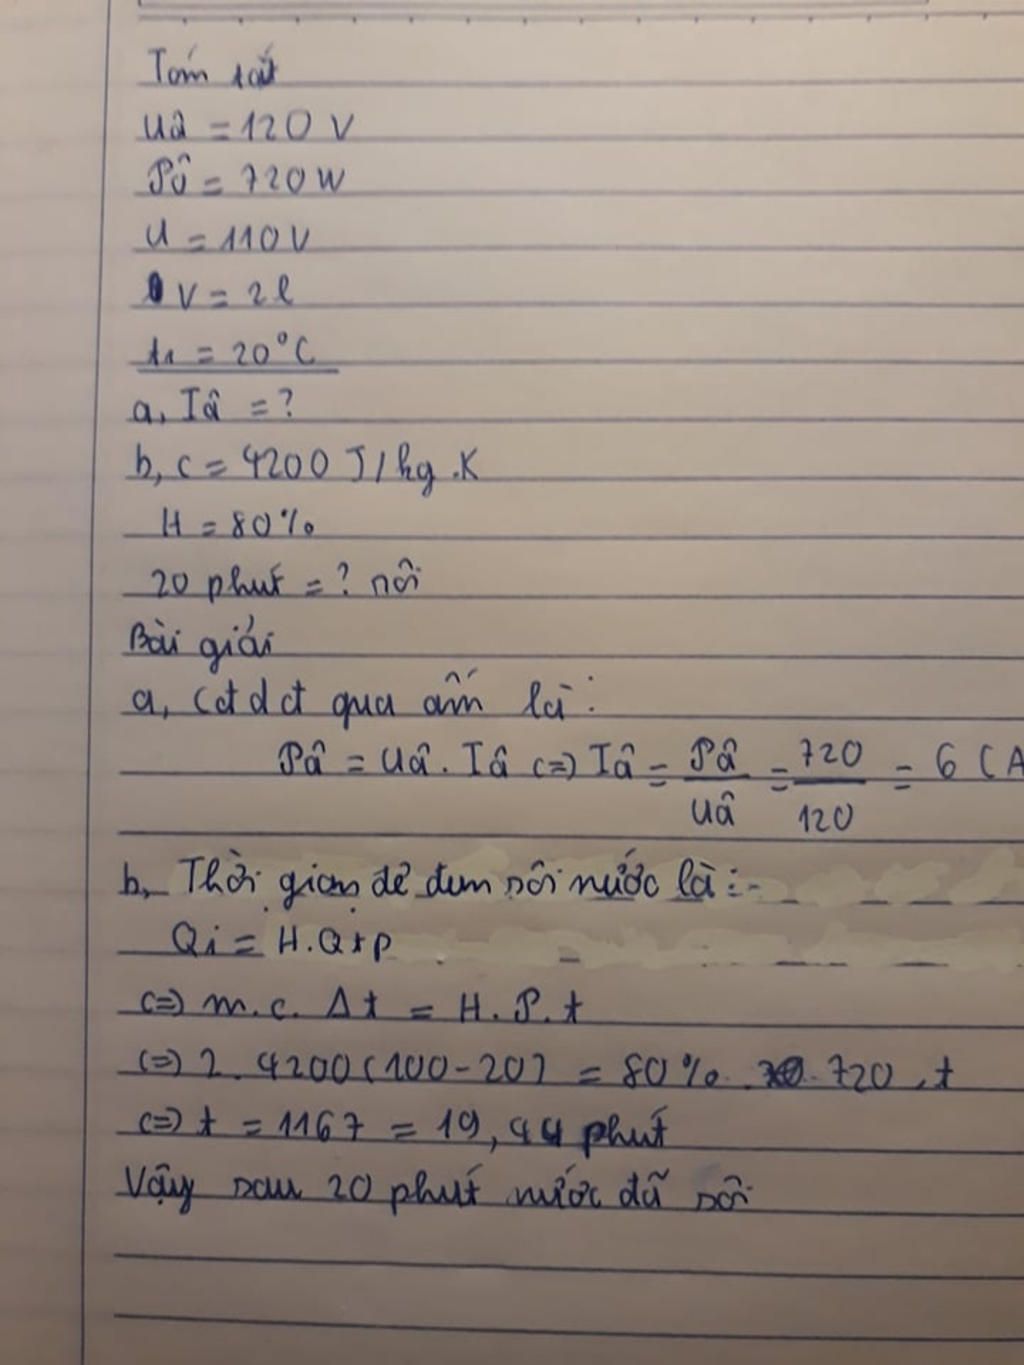 Tóm tắt
Uâ = 120 V
Pâ = 720 W
U = 110 V
V = 2l
t₁ = 20°C
a, Iâ = ?
b, c = 4200 J/kg.K
H = 80%
20 phút = ? sôi
Bài giải
a, Cđdđ qua ấm là:
Pâ = Uâ. Iâ (=) Iâ = Pâ/Uâ = 720/120 = 6 (A
b, Thời gian để đun sôi nước là:
Qi = H.Qtp
(=) m.c. Δt = H.P.t
(=) 2. 4200(100-20) = 80%. 720.t
(=) t = 1167 = 19,44 phút
Vậy sau 20 phút nước đã sôi